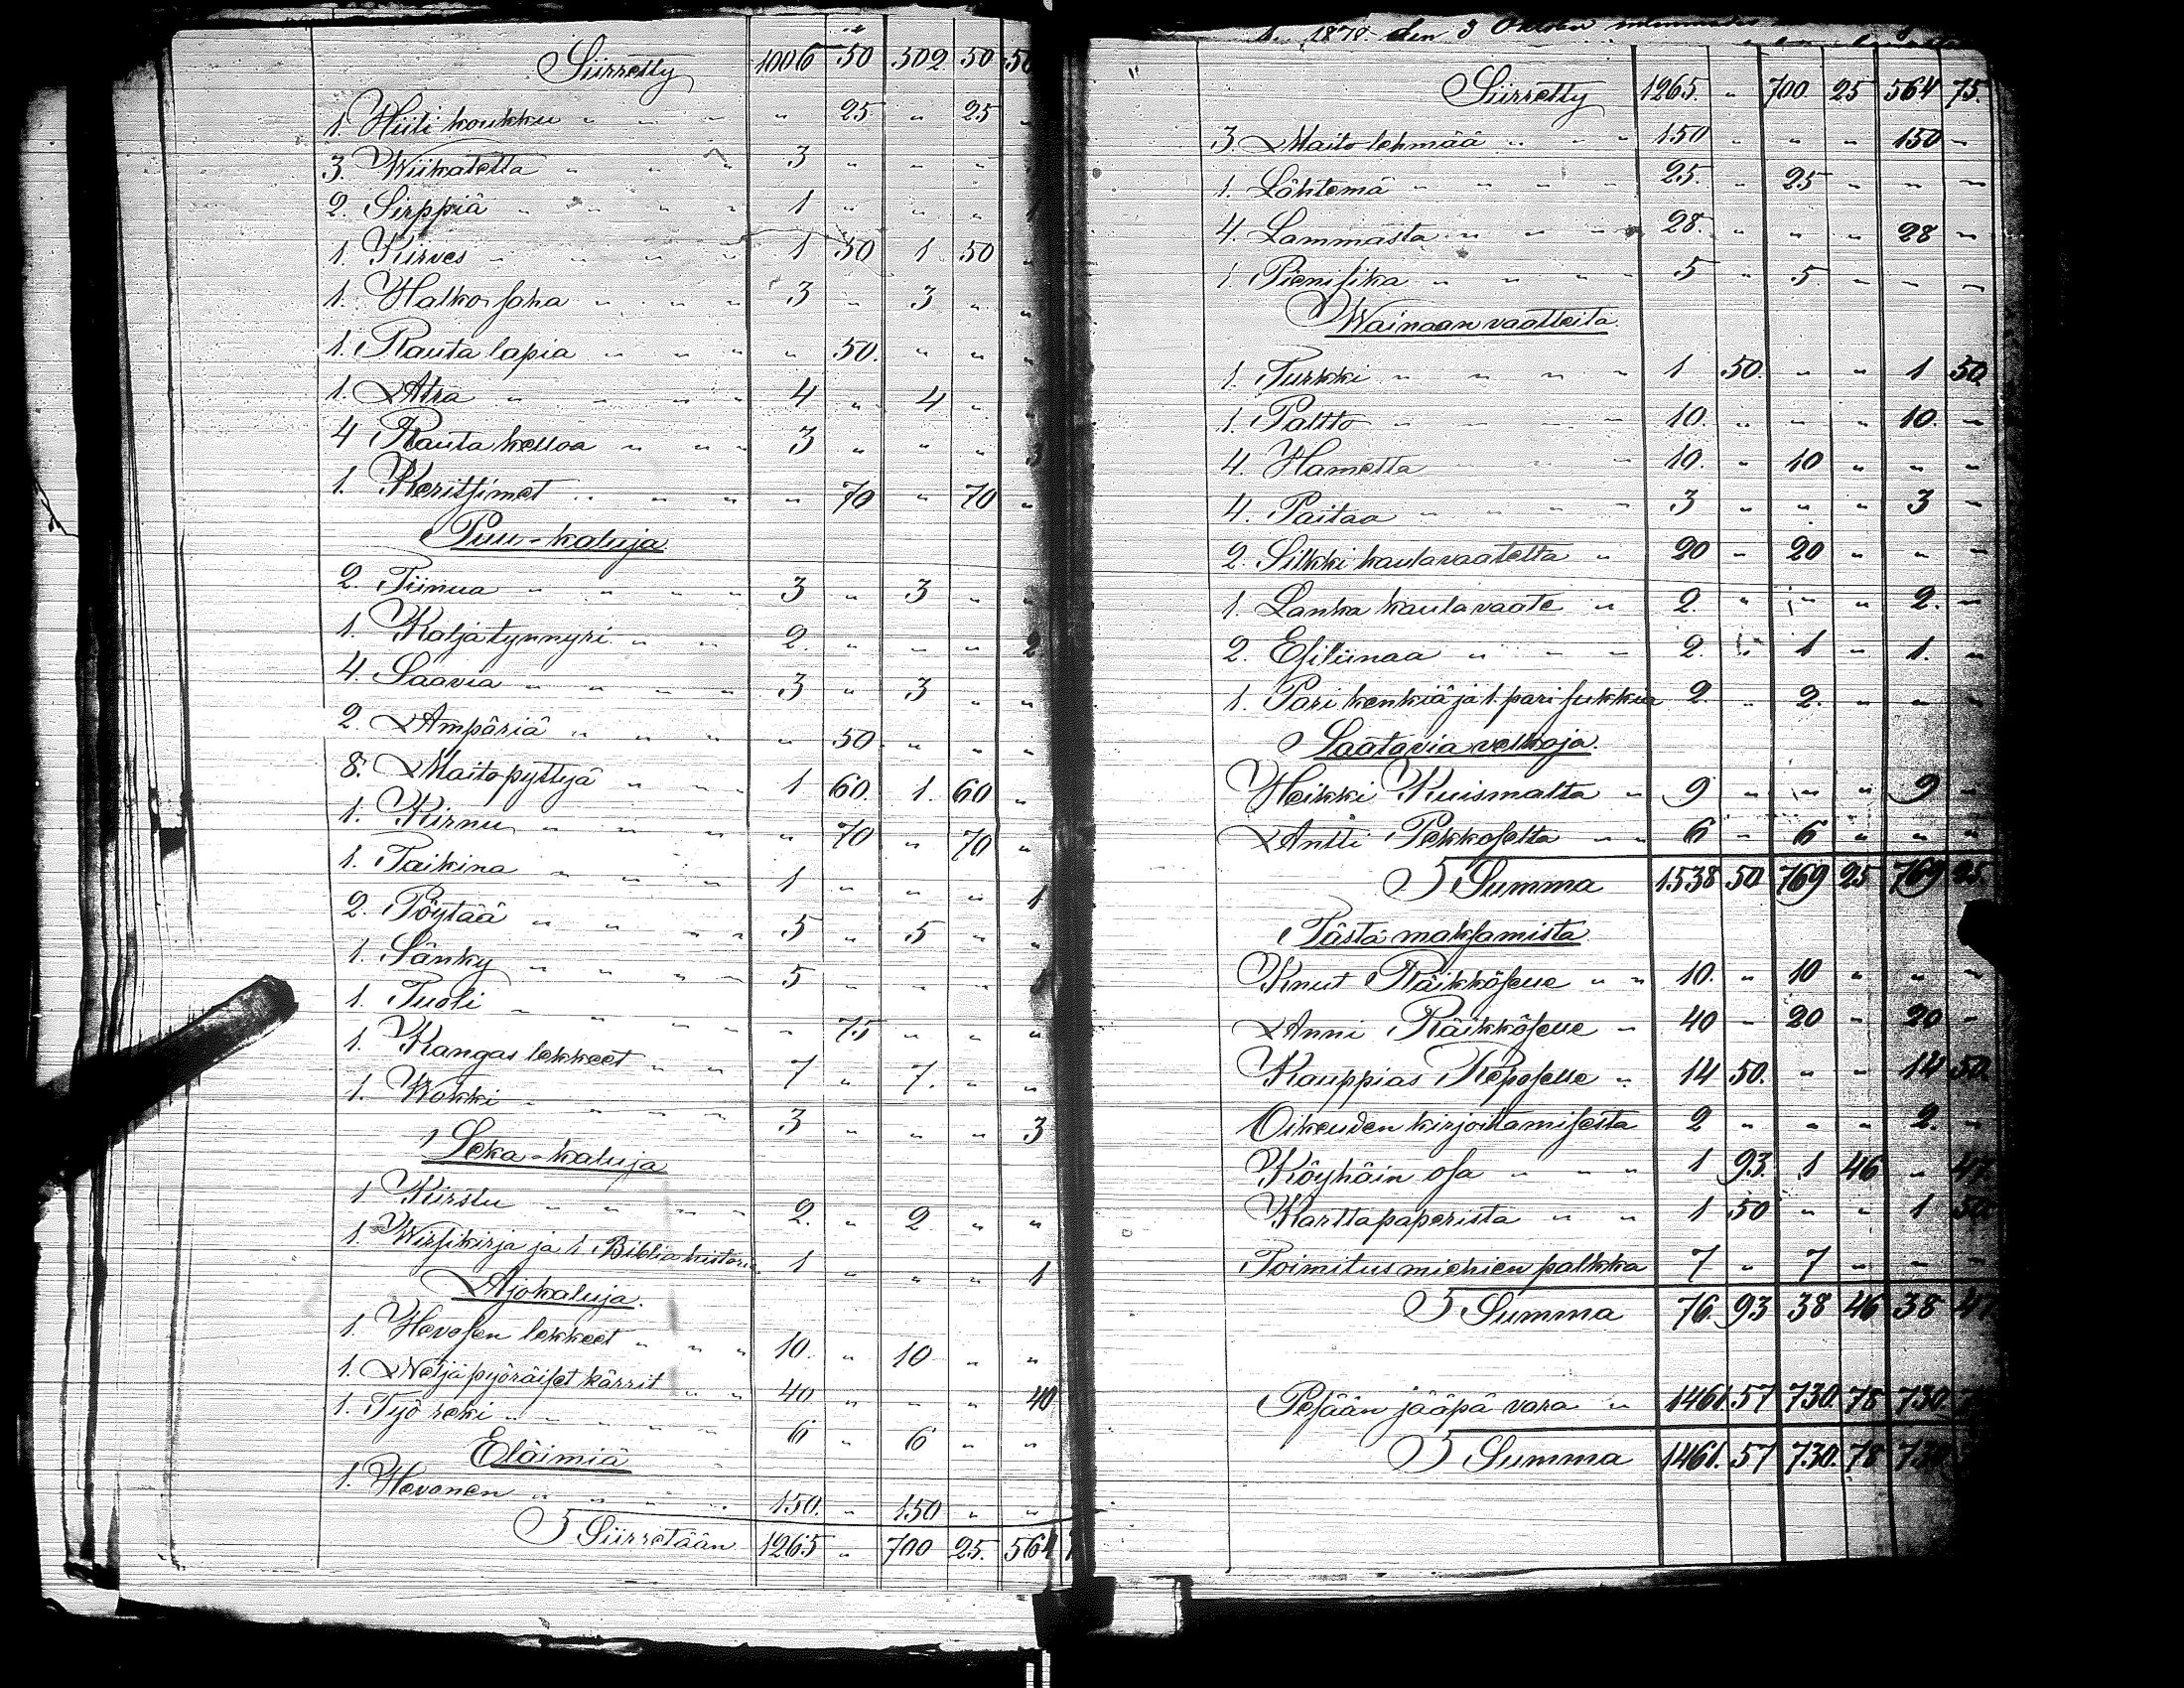 Siirretty 1006 50 502 50 50
1. Hiili koukku " " " " 25 " 25 "
3. Wiikatetta " " " 3 " " " "
2. Sirppiä " " " " 1 " " " "
1. Kirves " " " " 1 50 1 50 "
1. Halko saha " " " 3 " 3 " "
1. Rauta lapia " " " " 50. " " "
1. Atra " " " " 4 " 4 " "
4 Rauta kelloa " " " 3 " " " 3
1. Keritsimet " " " " 70 " 70 "
Puu-kaluja
2. Tiinua " " " " 3 " 3 " "
1. Kaljatynnyri " " " 2. " " " 2
4. Saavia " " " " 3 " 3 " "
2. Ämpäriä " " " " " 50 " " "
8. Maitopyttyjä " " " 1 60. 1. 60 "
1. Kirnu " " " " " 70 " 70 "
1. Taikina " " " " 1 " " " 1
2. Pöytää " " " " 5 " 5 " "
1. Sänky " " " " 5 " " "
1. Tuoli " " " " " 75 " " "
1. Kangas lekkeet " " 7 " 7. " "
1. Wokki " " " " 3 " " " 3
Seka-kaluja
1 Kirstu " " " " 2. " 2 " "
1. Wirsikirja ja 1 Biblia historia 1 " " " 1
Ajokaluja.
1. Hevosen lekkeet " " " 10. " 10 " "
1. Neljäpyöräiset kärrit " " 40 " " " 40
1. Työ reki " " " " 6 " 6 " "
Eläimiä
1. Hevonen " " " " 150. " 150 " "
Siirretään 1265 " 700 25. 564
1878 den 3
Siirretty 1265. " 700 25 564 75.
3. Maito lehmää " " " 150 " " " 150 "
1. Lähtemä " " " " 25. " 25 " " "
4. Lammasta " " " " 28. " " " 28 "
1. Pieni sika " " " " 5 " 5 " " "
Wainaan vaatteita.
1. Turkki " " " " 1 50. " " 1 50.
1. Paltto " " " " 10. " " " 10. "
4. Hametta " " " " 10. " 10 " " "
4. Paitaa " " " " 3 " " " 3 "
2. Silkki kaulavaatetta " 20 " 20 " " "
1. Lanka kaulavaate " 2. " " " 2. "
2. Esiliinaa " " " 2. " 1 " 1. "
1. Pari kenkiä ja 1. pari sukkia 2. " 2. " " "
Saatavia velkoja.
Heikki Kuismalta " 9 " " " 9 "
Antti Pekkoselta " " 6 " 6 " " "
Summa 1538 50 769 25 769 25.
Tästä maksamista
Knut Räikköselle " " 10. " 10 " " "
Anni Räikköselle " 40 " 20 " 20 "
Kauppias Reposelle " 14 50. " " 14 50
Oikeuden kirjoittamisesta 2 " " " 2. "
Köyhäin osa " " " 1 93. 1 46 " 47.
Karttapaperista " " 1 50 " " 1 50
Toimitusmiehien palkka 7 " 7 " " "
Summa 76. 93 38 46 38 47
Pesään jääpä vara " 1461. 57 730. 78 730.
Summa 1461. 57 730. 78 730